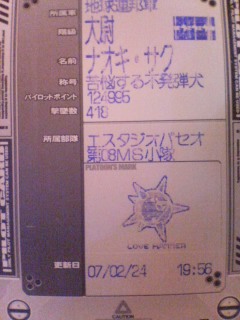 所属軍 地球連邦軍
階級 大尉
名前 ナオキ・サク
称号 苦悩する不発弾犬
パイロットポイント 124995
撃墜数 418
所属部隊 エスタジオパセオ
第08MS小隊
PLATOON'S MARK
LOVE HATTER
更新日 07/02/24 19:56
CAUTION